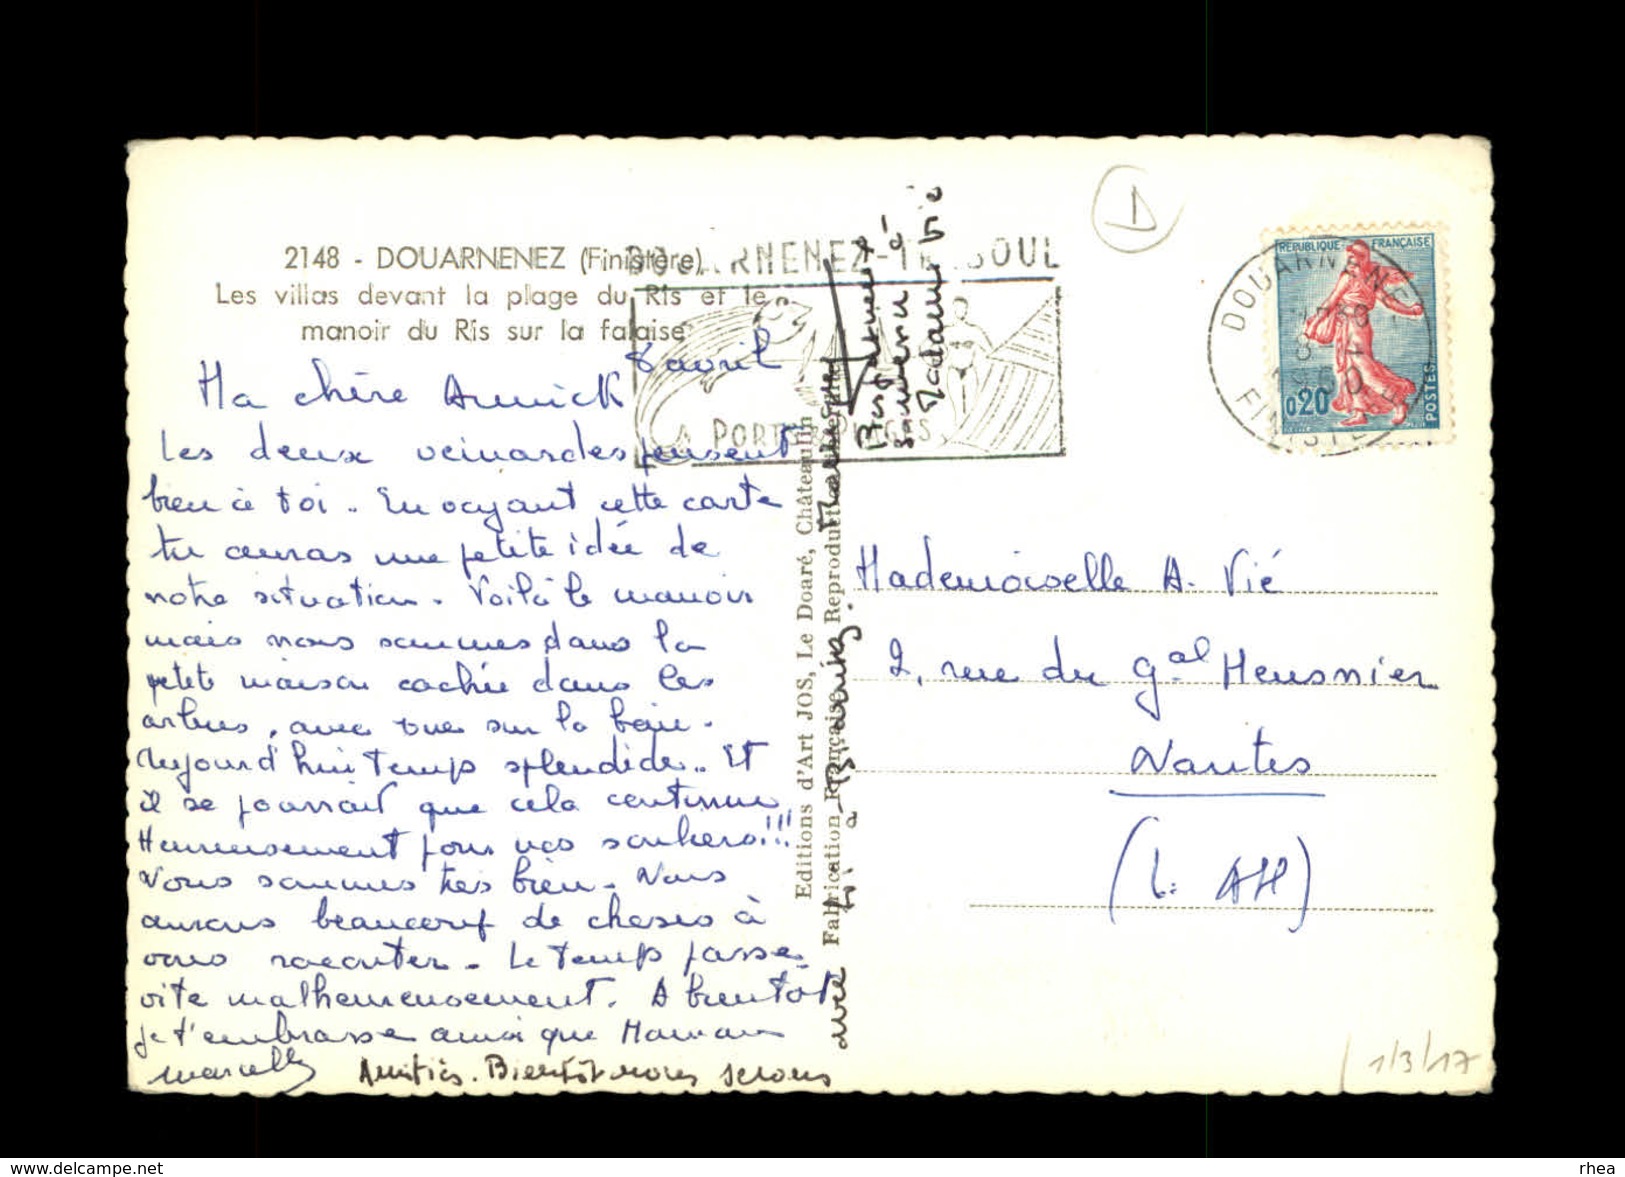 2148 - DOUARNENEZ (Finistère)
Les villas devant la plage du Ris et le
manoir du Ris sur la falaise
8 avril
Ma chère Annick
Les deux veinardes pensent
bien à toi. En voyant cette carte
tu auras une petite idée de
notre situation. Voilà le manoir
mais nous sommes dans la
petite maison cachée dans les
arbres, avec vue sur la baie.
Aujourd'hui temps splendide. Et
il se pourrait que cela continue
Heureusement pour nos santers!!!
Nous sommes très bien. Nous
aurons beaucoup de choses à
vous raconter. Le temps passe
vite malheureusement. A bientôt
je t'embrasse ainsi que Maman
Marcelle
Amitiés. Bientôt nous serons
avec
Bon souvenir à
Madame Vié
Editions d'Art JOS, Le Doaré, Châteaulin
Fabrication Française. Reproduction interdite
DOUARNENEZ-TREBOUL
PORTS PLAGES
DOUARNENEZ
FINISTERE
1960
REPUBLIQUE FRANÇAISE
0,20
POSTES
D
Mademoiselle A. Vié
2, rue du Gal Meusnier
Nantes
(L. Atl)
1/3/17
www.delcampe.net
rhea